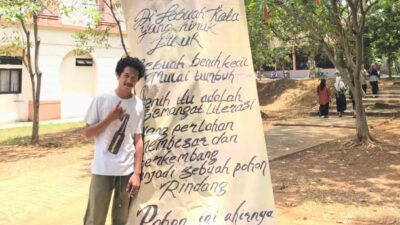 Di Sebuah Kota
yang hiruk
Pikuk
Sebuah benih kecil
Mulai tumbuh
Benih itu adalah
Semangat literasi
yang perlahan
Membesar dan
berkembang
Menjadi sebuah pohon
Rindang
Pohon ini akhirnya